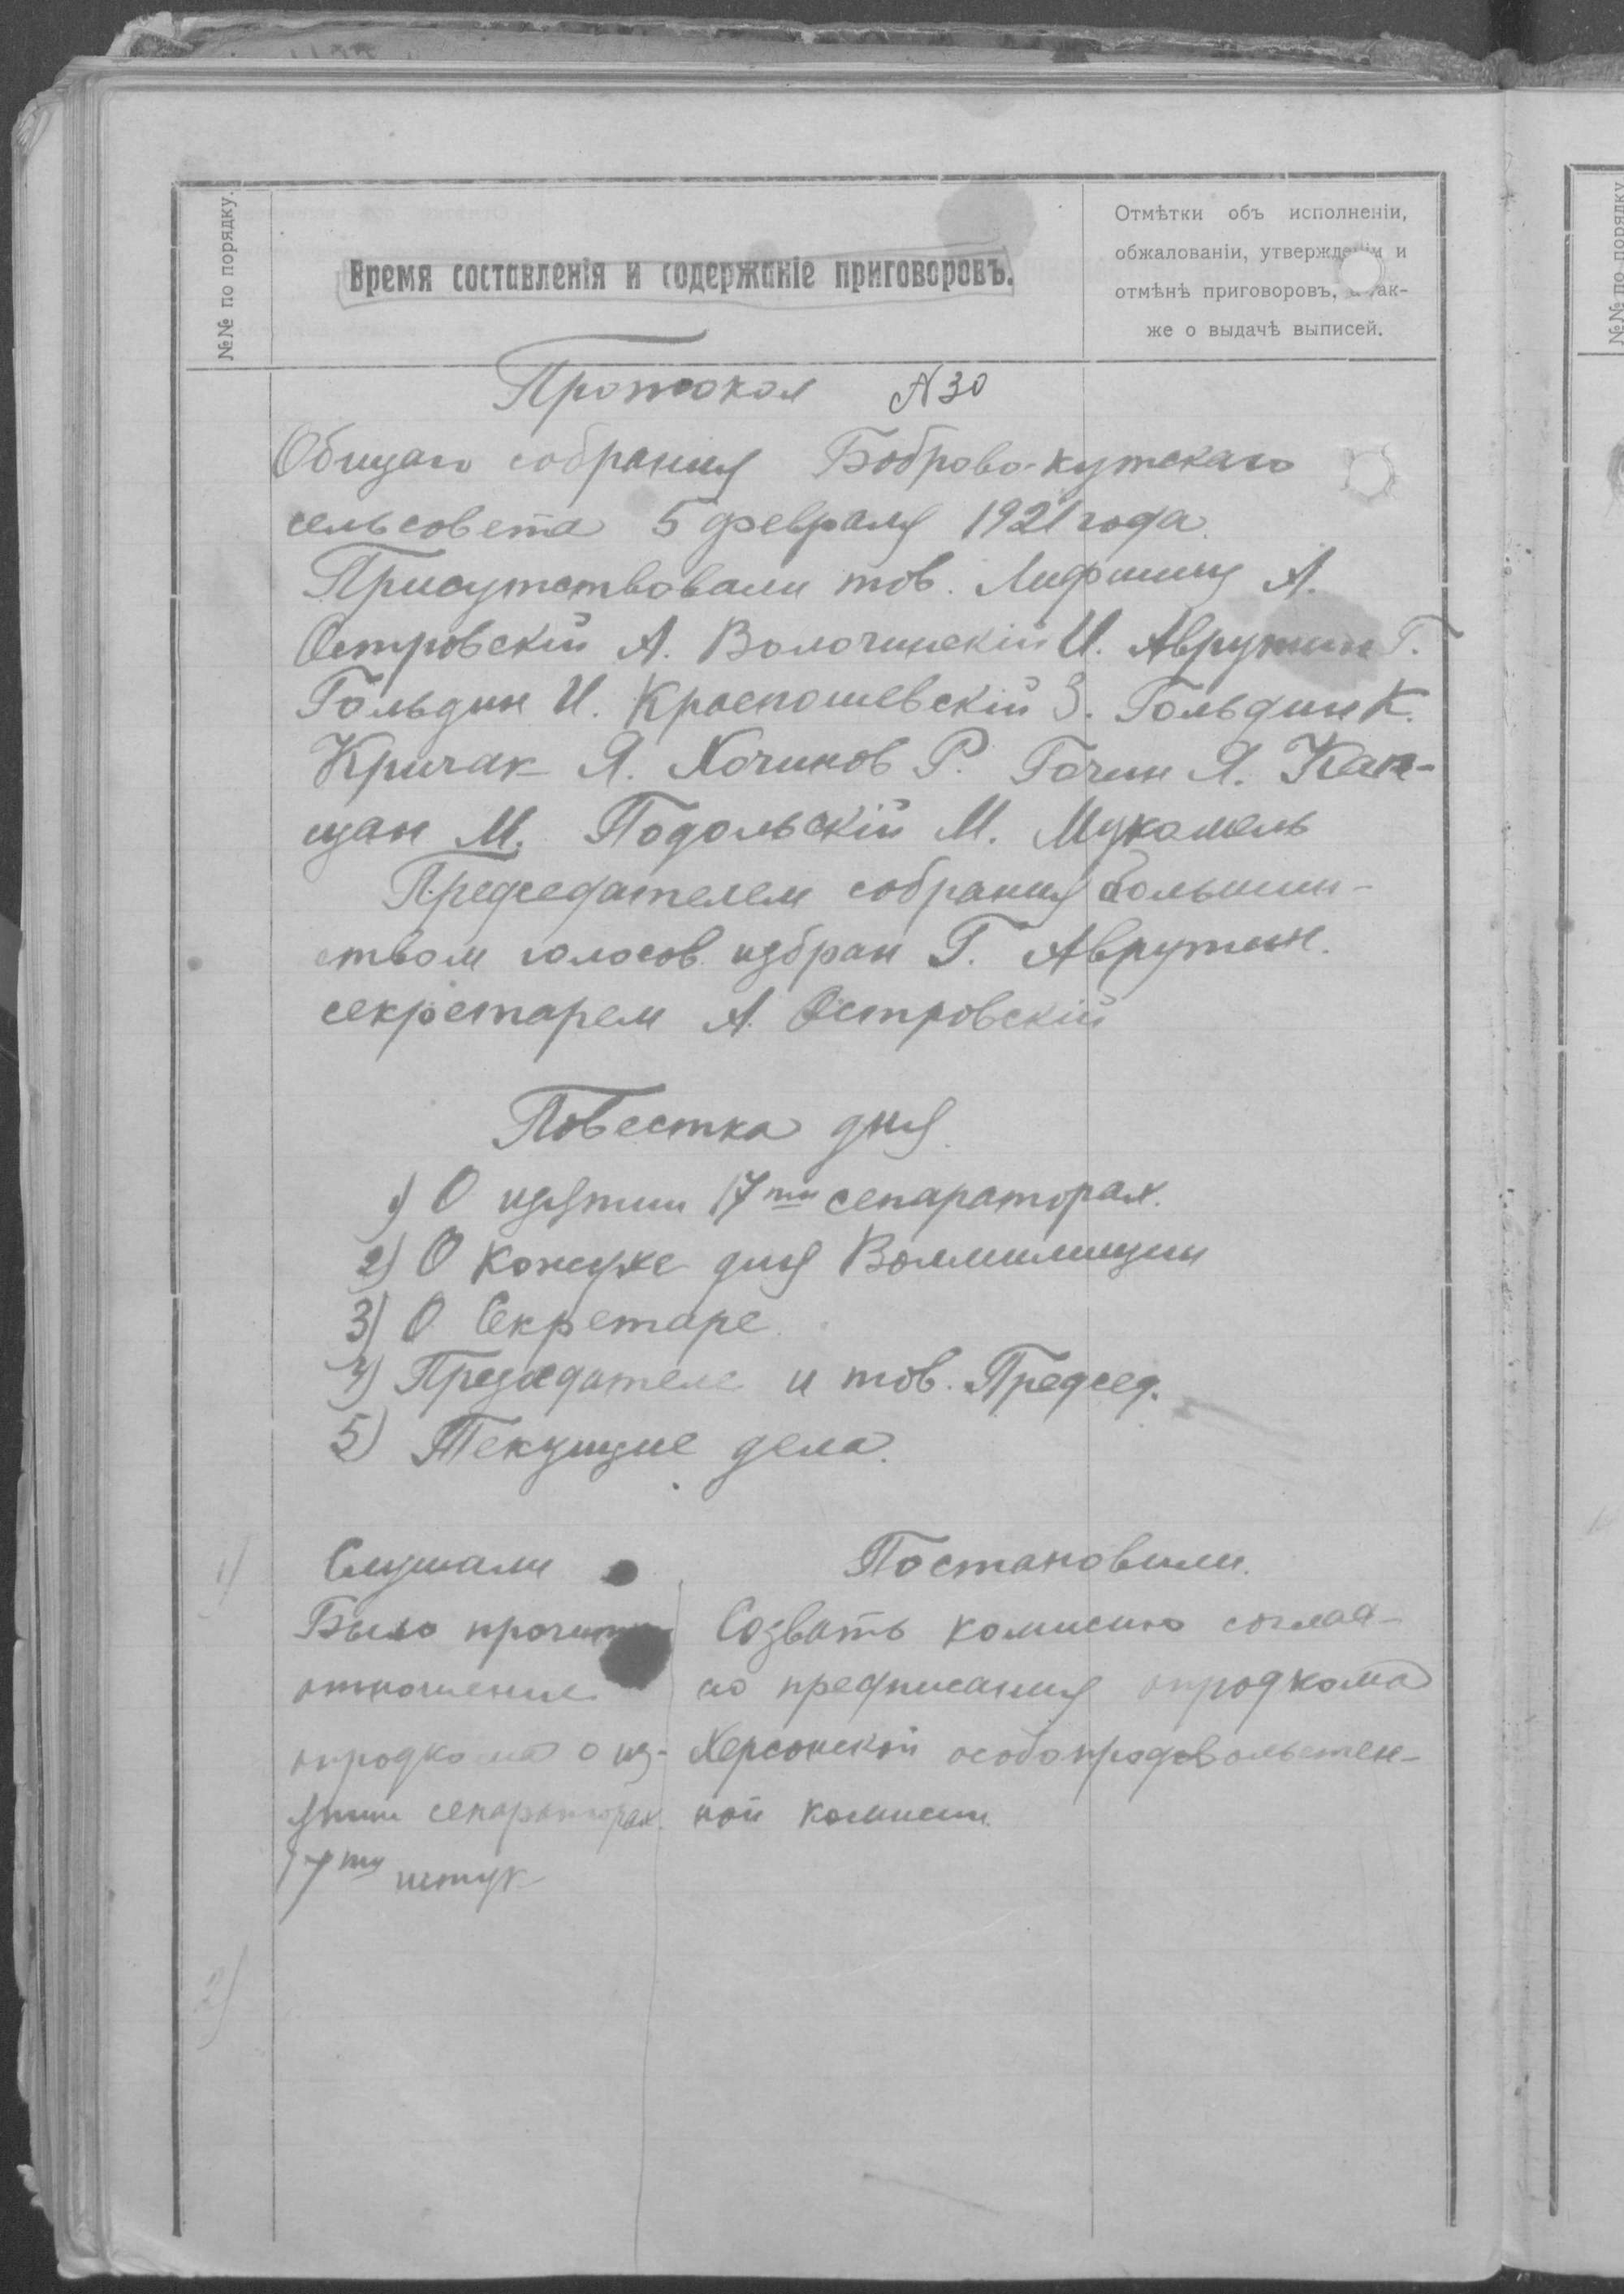 №№ по порядку.
Время составленія и содержаніе приговоровъ.
Отмѣтки объ исполненіи,
обжалованіи, утвержденіи и
отмѣнѣ приговоровъ, а так-
же о выдачѣ выписей.
Протокол N 30
Общаго собрания Боброво-кутскаго
сельсовета 5 февраля 1921 года.
Присутствовали тов. Лифшиц А.
Островскій А. Волочинскій И. Аврутин Г.
Гольдин И. Краспошевскій З. Гольдин К.
Кричак Я. Хочинов Р. Гочин Я. Кап-
цан М. Подольскій М. Мукомель
Председателем собрания большин-
ством голосов избран Г. Аврутин.
секретарем А. Островскій
Повестка дня.
1) О изятии 17ти сепараторах.
2) О кожухе для Волмилиции
3) О Секретаре.
4) Председателе и тов. Председ.
5) Текущие дела.
1) Слушали Постановили.
Было прочит Созвать комисию соглас-
отношение но предписания опродкома
опродкома о из- Херсонской особопродовольствен-
ятии сепараторах ной комисии.
17ти штук
2)
№№ по порядку